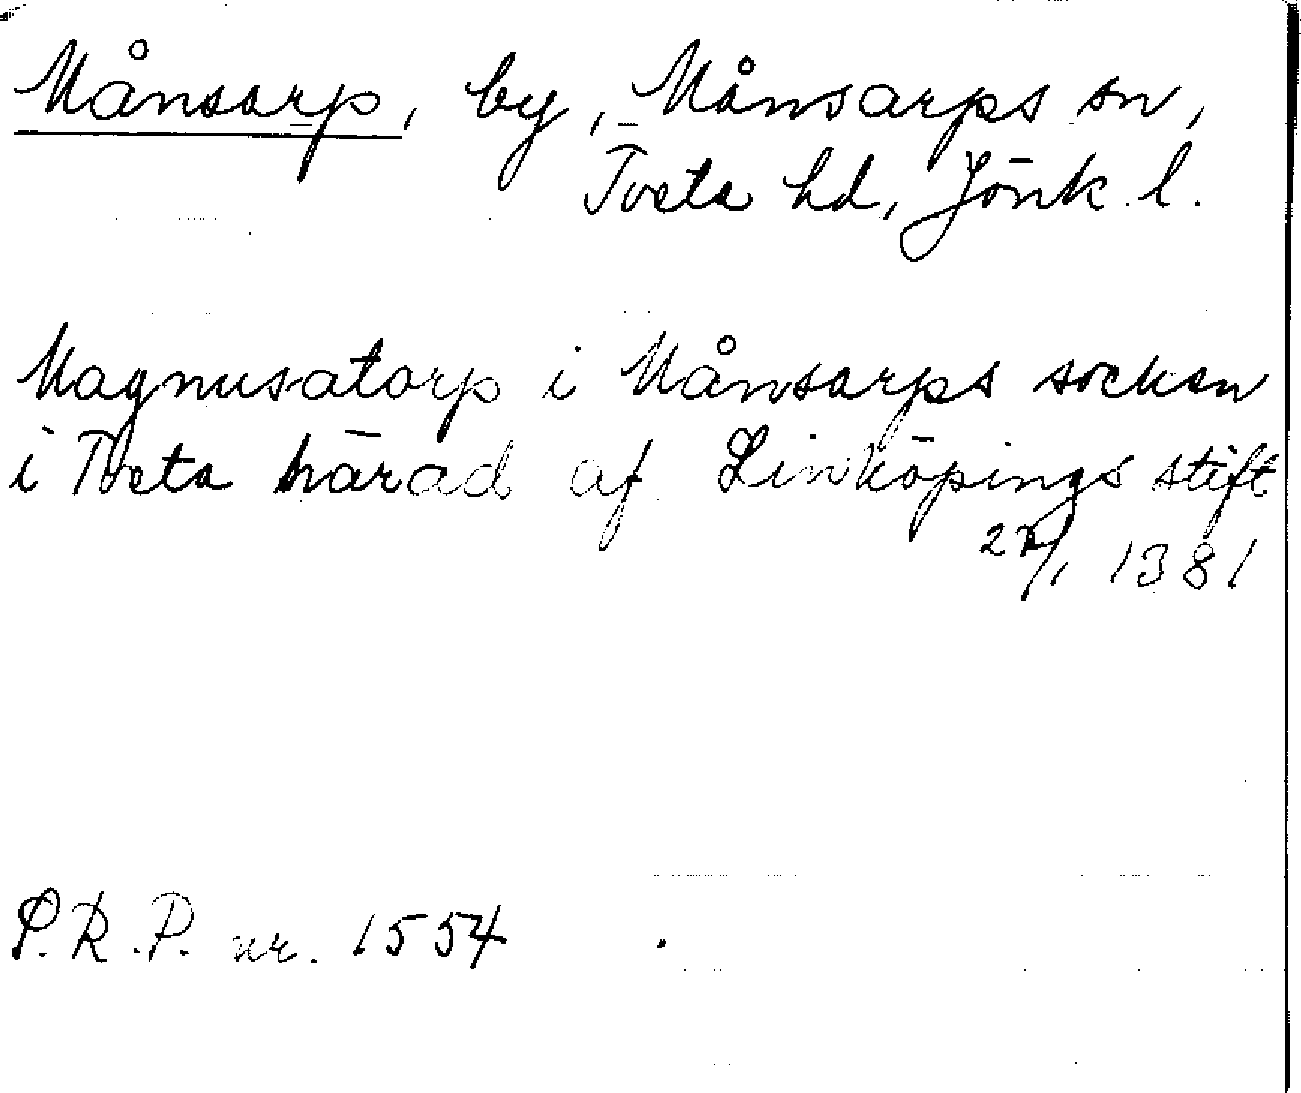 Månsarp, by, Månsarps sn,
Tveta hd, Jönk. l.
Magnusatorp i Månsarps socken
i Tveta härad af Linköpings stift
1381
P.R.P. nr. 1554